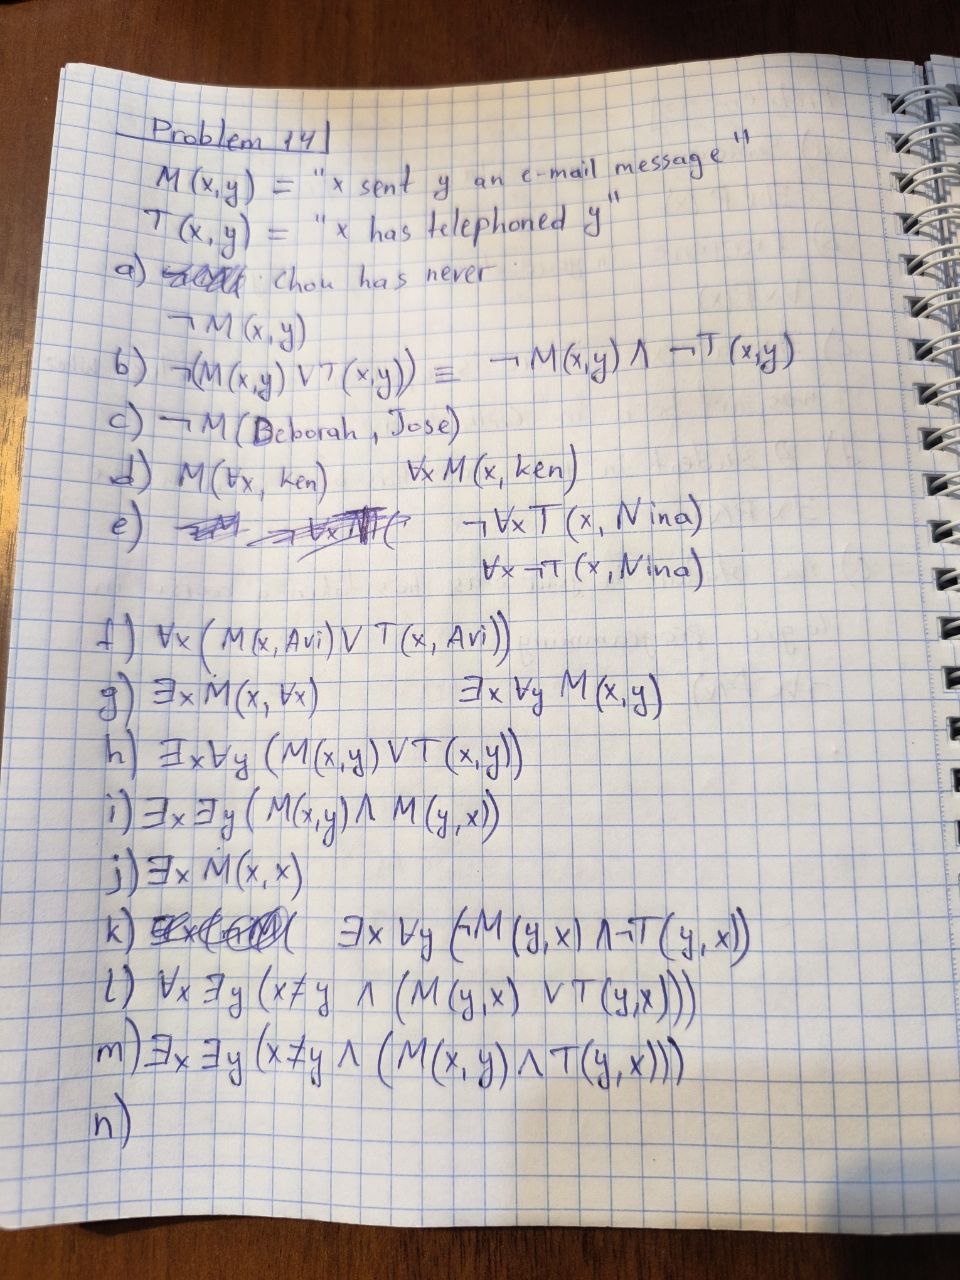 Problem 14
M(x,y) = "x sent y an e-mail message"
T(x,y) = "x has telephoned y"
a) Chou has never
¬M(x,y)
b) ¬(M(x,y) ∨ T(x,y)) ≡ ¬M(x,y) ∧ ¬T(x,y)
c) ¬M(Deborah, Jose)
d) M(∀x, Ken) ∀x M(x, Ken)
e) ¬∀x T(x, Nina)
∀x ¬T(x, Nina)
f) ∀x (M(x, Avi) ∨ T(x, Avi))
g) ∃x M(x, ∀x) ∃x ∀y M(x,y)
h) ∃x ∀y (M(x,y) ∨ T(x,y))
i) ∃x ∃y (M(x,y) ∧ M(y,x))
j) ∃x M(x,x)
k) ∃x ∀y (¬M(y,x) ∧ ¬T(y,x))
l) ∀x ∃y (x≠y ∧ (M(y,x) ∨ T(y,x)))
m) ∃x ∃y (x≠y ∧ (M(x,y) ∧ T(y,x)))
n)